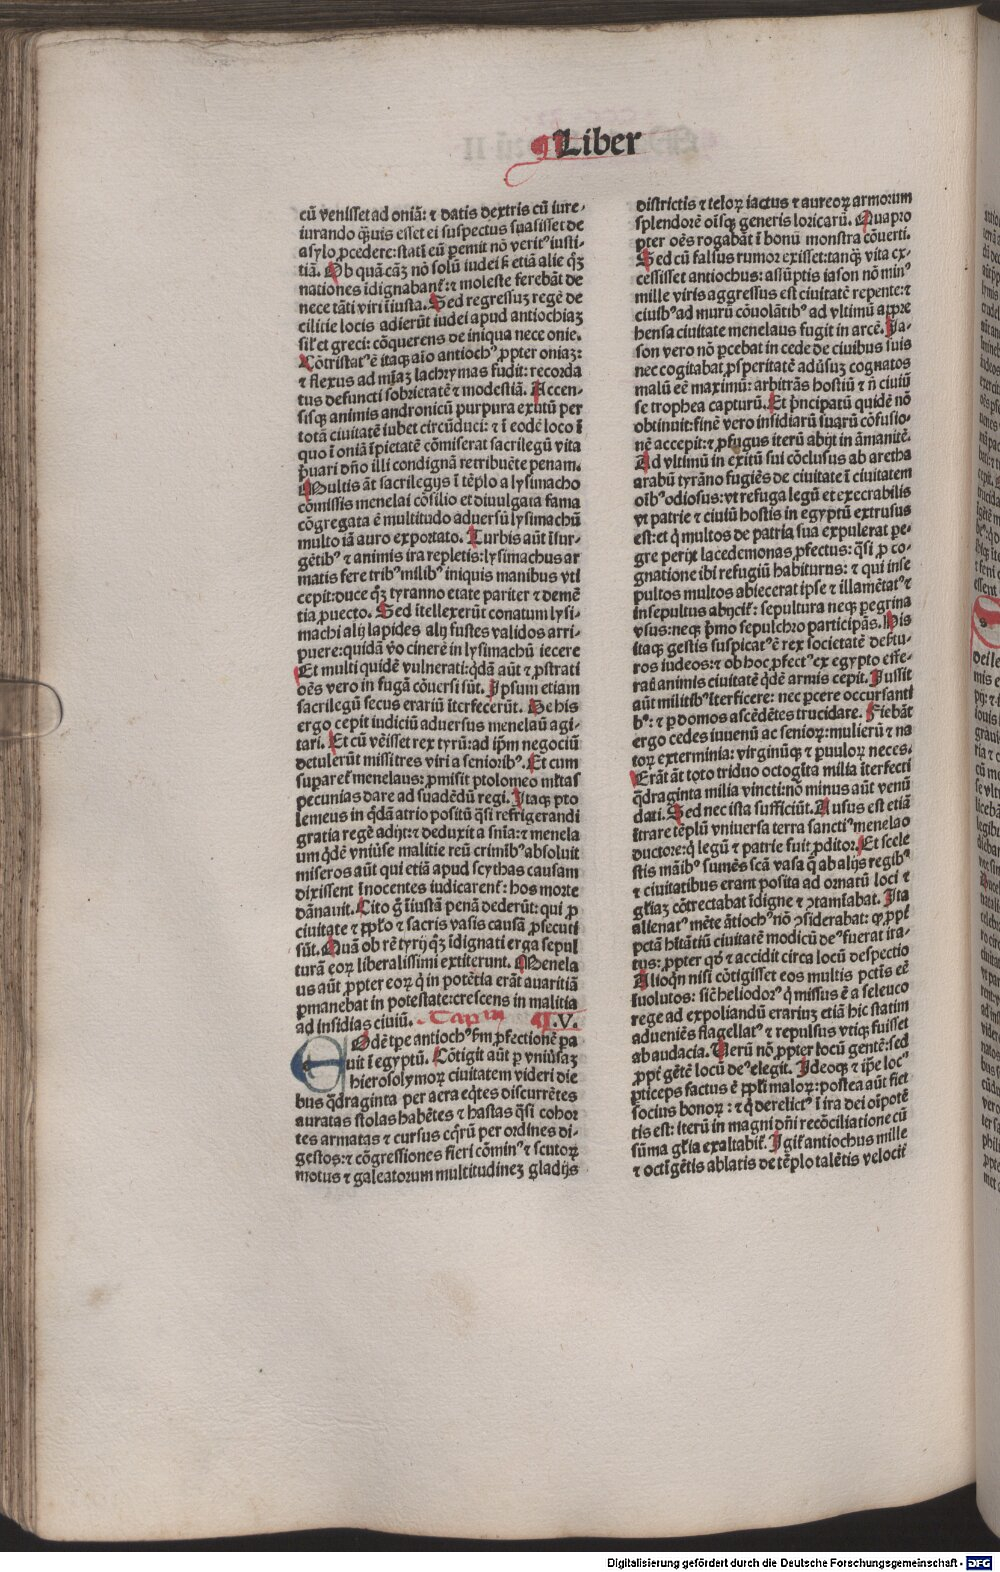 Liber
cū veniſſet ad oniā: ⁊ datis dextris cū iure-
iurando q̄uis eſſet ei ſuſpectus ſuaſiſſet de
aſylo ꝓcedere: ſtatī eū ꝑemit nō verit⁹ iuſti-
tiā. Ob quā cāʒ nō ſolū iudei ſꝫ etiā alie q̄ʒ
nationes īdignabant̄: ⁊ moleſte ferebāt de
nece tāti viri īiuſta. Sed regreſſuʒ regē de
cilicie locis adierūt iudei apud antiochiaʒ
ſil̄ et greci: cōquerens de iniqua nece onie.
Cōtriſtat⁹ ē itaqꝫ aīo antioch⁹ ꝓpter oniaʒ:
⁊ flexus ad mīaʒ lachrymas fudit: recorda
tus defuncti ſobrietatē ⁊ modeſtiā. Accen-
ſiſqꝫ animis andronicū purpura exutū per
totā ciuitatē iubet circūduci: ⁊ ī eodē loco ī
quo ī oniā īpietatē cōmiſerat ſacrilegū vita
p̄uari dn̄o illi condignā retribuēte penam.
Multis āt ſacrilegijs ī tēplo a lyſimacho
cōmiſſis menelai cōſilio et diuulgata fama
cōgregata ē multitudo aduerſū lyſimachū
multo iā auro exportato. Turbis aūt īſur-
gētib⁹ ⁊ animis ira repletis: lyſimachus ar
matis fere trib⁹ milib⁹ iniquis manibus vti
cepit: duce q̄ʒ tyranno etate pariter ⁊ demē
tia ꝓuecto. Sed ītellexerūt conatum lyſi-
machi alij lapides alij fuſtes validos arri-
puere: quidā v̄o cinerē in lyſimachū iecere
Et multi quidē vulnerati: q̄dā aūt ⁊ ꝓſtrati
oēs vero in fugā cōuerſi ſūt. Ipſum etiam
ſacrilegū ſecus erariū īterfecerūt. De his
ergo cepit iudiciū aduerſus menelaū agi-
tari. Et cū vēiſſet rex tyrū: ad ip̄m negociū
detulerūt miſſi tres viri a ſeniorib⁹. Et cum
ſuꝑaret̄ menelaus: ꝓmiſit ptolomeo ml̄tas
pecunias dare ad ſuadēdū regi. Itaqꝫ pto
lemeus in q̄dā atrio poſitū q̄ſi refrigerandi
gratia regē adijt: ⁊ deduxit a ſn̄ia: ⁊ menela
um q̄dē vniūſe malitie reū crimīb⁹ abſoluit
miſeros aūt qui etiā apud ſcythas cauſam
dixiſſent īnocentes iudicarent̄: hos morte
dānauit. Cito g̊ īiuſtā penā dederūt: qui ꝓ
ciuitate ⁊ pp̄lo ⁊ ſacris vaſis cauſā ꝓſecuti
ſūt. Quā ob rē tyrij q̄ʒ īdignati erga ſepul
turā eoꝝ liberaliſſimi extiterunt. Menela
us aūt ꝓpter eoꝝ q̄ in potētia erāt auaritiā
ꝑmanebat in poteſtate: creſcens in malitia
ad inſidias ciuiū. Cap m .V.
EOdē tꝑe antioch⁹ ſm̄ ꝓfectionē pa
uit ī egyptū. Cōtigit aūt ꝑ vniūſaʒ
hieroſolymoꝝ ciuitatem videri die
bus q̄draginta per aera eq̄tes diſcurrētes
auratas ſtolas habētes ⁊ haſtas q̄ſi cohor
tes armatas ⁊ curſus eq̄rū per ordines di-
geſtos: ⁊ cōgreſſiones fieri cōmin⁹ ⁊ ſcutoꝝ
motus ⁊ galeatorum multitudineʒ gladijs
diſtrictis ⁊ teloꝝ iactus ⁊ aureoꝝ armorum
ſplendorē oīſqꝫ generis loricarū. Quapro
pter oēs rogabāt ī bonū monſtra cōuerti.
Sed cū falſus rumor exiſſet: tanq̄ʒ vita ex-
ceſſiſſet antiochus: aſſūptis iaſon nō min⁹
mille viris aggreſſus eſt ciuitatē repente: ⁊
ciuib⁹ ad murū cōuolātib⁹ ad vltimū appre
henſa ciuitate menelaus fugit in arcē. Ja-
ſon vero nō ꝑcebat in cede de ciuibus ſuis
nec cogitabat ꝓſperitatē aduſuʒ cognatos
malū eē maximū: arbitrās hoſtiū ⁊ n̄ ciuiū
ſe trophea capturū. Et p̄ncipatū quidē nō
obtinuit: finē vero inſidiarū ſuarū cōfuſio-
nē accepit: ⁊ ꝓfugus iterū abijt in āmanitē.
Ad vltimū in exitū ſui cōcluſus ab aretha
arabū tyrāno fugiēs de ciuitate ī ciuitatem
oīb⁹ odioſus: vt refuga legū et execrabilis
vt patrie ⁊ ciuiū hoſtis in egyptū extruſus
eſt: et q̄ multos de patria ſua expulerat ꝑe-
gre perijt lacedemonas ꝓfectus: q̄ſi ꝓ co-
gnatione ibi refugiū habiturus: ⁊ qui inſe
pultos multos abiecerat ipſe ⁊ illamētat⁹ ⁊
inſepultus abijcit̄: ſepultura neqꝫ ꝑegrina
vſus: neqꝫ p̄mo ſepulchro participās. His
itaqꝫ geſtis ſuſpicat⁹ ē rex ſocietatē deſertu-
ros iudeos: ⁊ ob hoc ꝓfect⁹ ex egypto effe-
rat̄ animis ciuitatē q̄dē armis cepit. Juſſit
aūt militib⁹ īterficere: nec ꝑcere occurſanti
b⁹: ⁊ ꝑ domos aſcēdētes trucidare. Fiebāt
ergo cedes iuuenū ac ſenioꝝ: mulierū ⁊ na
toꝝ exterminia: virginūqꝫ ⁊ ꝑuuloꝝ neces.
Erāt āt toto triduo octogīta milia īterfecti
q̄draginta milia vincti: nō minus aūt venū
dati. Sed nec iſta ſufficiūt. Auſus eſt etiā
ītrare tēplū vniuerſa terra ſancti⁹ menelao
ductore: q̄ legū ⁊ patrie fuit ꝓditor. Et ſcele
ſtis māib⁹ ſumēs ſcā vaſa q̄ ab alijs regib⁹
⁊ ciuitatibus erant poſita ad ornatū loci ⁊
gl̄iaʒ cōtrectabat īdigne ⁊ ꝯtamīabat. Ita
alienat⁹ mēte ātioch⁹ nō ꝯſiderabat: qꝫ ꝓpt̄
pctā hītātiū ciuitatē modicū de⁹ fuerat ira-
tus: ꝓpter qd̊ ⁊ accidit circa locū deſpectio
Alioqn̄ niſi cōtigiſſet eos multis pctīs eē
īuolutos: ſic̄ heliodor⁹ q̄ miſſus ē a ſeleuco
rege ad expoliandū erariuʒ etiā hic ſtatim
adueniēs flagellat⁹ ⁊ repulſus vtiqꝫ fuiſſet
ab audacia. Verū nō ꝓpter locū gentē: ſed
ꝓpt̄ gētē locū de⁹ elegit. Ideoqꝫ ⁊ ip̄e loc⁹
ꝑticeps factus ē pp̄li maloꝝ: poſtea aūt fiet
ſocius bonoꝝ: ⁊ q̄ derelict⁹ ī ira dei oīpotē
tis eſt: iterū in magni dn̄i recōciliatione cū
ſūma gl̄ia exaltabit̄. Igit̄ antiochus mille
⁊ octīgētis ablatis de tēplo talētis velocit̄
Digitalisierung gefördert durch die Deutsche Forschungsgemeinschaft - DFG